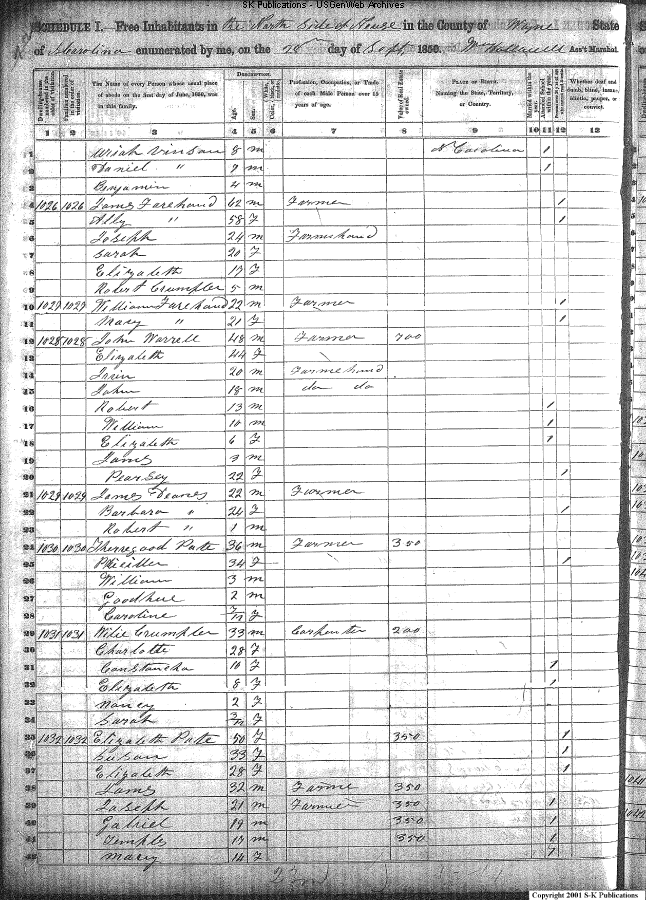 SK Publications - USGenWeb Archives
SCHEDULE I. - Free Inhabitants in the North Side of Neuse in the County of Wayne State
of N Carolina enumerated by me, on the day of Sept 1850. Ass't Marshal.
Dwelling-houses numbered in the order of visitation.
Families numbered in the order of visitation.
The Name of every Person whose usual place of abode on the first day of June, 1850, was in this family.
DESCRIPTION.
Age.
Sex.
Profession, Occupation, or Trade of each Male Person over 15 years of age.
Value of Real Estate owned.
PLACE OF BIRTH. Naming the State, Territory, or Country.
Married within the year.
Whether deaf and dumb, blind, insane, idiotic, pauper, or convict.
1 2 3 4 5 6 7 8 9 10 11 12 13
1 Uriah Vinson 8 m N Carolina 1
2 Daniel " 7 m 1
3 Benjamin 4 m
4 1026 1026 James Farehand 62 m Farmer 1
5 Ally " 58 F 1
6 Joseph 24 m Farmehand
7 Sarah 20 F
8 Elizabeth 17 F
9 Robert Crumpler 5 m
10 1027 1027 William Farehand 22 m Farmer 1
11 Mary " 21 F 1
12 1028 1028 John Worrell 48 m Farmer 700
13 Elizabeth 44 F
14 20 m Farmehand
15 John 18 m do do
16 Robert 13 m 1
17 William 10 m 1
18 Elizabeth 6 F 1
19 James 3 m
20 Pearsey 22 F 1
21 1029 1029 James Deanes 22 m Farmer
22 Barbara " 24 F 1
23 Robert " 1 m
24 1030 1030 Therregood Pate 36 m Farmer 350
25 34 F 1
26 William 3 m
27 2 m
28 Caroline 7/12 F
29 1031 1031 Wilie Crumpler 33 m Carpenter 200
30 Charlotte 28 F
31 10 F 1
32 Elizabeth 8 F 1
33 Nancy 2 F
34 Sarah 3/12 F
35 1032 1032 Elizabeth Pate 50 F 350 1
36 Susan 33 F 1
37 Elizabeth 28 F 1
38 James 32 m Farme 350
39 Joseph 21 m Farmer 350 1
40 Gabriel 19 m 350 1
41 Temple 17 m 350 1
42 Mary 14 F 1
Copyright 2001 S-K Publications